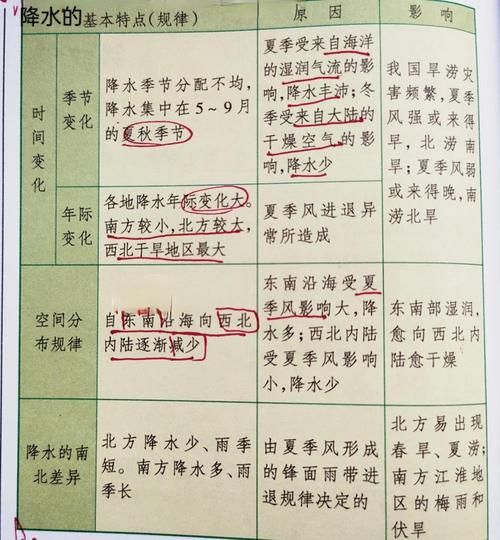 降水的基本特点(规律)
原因
影响
时间变化
季节
变化
降水季节分配不均,
降水集中在5~9月
的夏秋季节
夏季受来自海洋
的湿润气流的影
响,降水丰沛;冬
季受来自大陆的
干燥空气的影
响,降水少
我国旱涝灾
害频繁,夏季
风强或来得
早,北涝南
旱;夏季风弱
或来得晚,南
涝北旱
年际
变化
各地降水年际变化大。
南方较小,北方较大,
西北干旱地区最大
夏季风进退异
常所造成
空间分
布规律
自东南沿海向西北
内陆逐渐减少
东南沿海受夏
季风影响大,降
水多;西北内陆
受夏季风影响
小,降水少
东南部湿润,
愈向西北内
陆愈干燥
降水的南
北差异
北方降水少、雨季
短。南方降水多、雨
季长
由夏季风形成
的锋面雨带进
退规律决定的
北方易出现
春旱、夏涝;
南方江淮地
区的梅雨和
伏旱